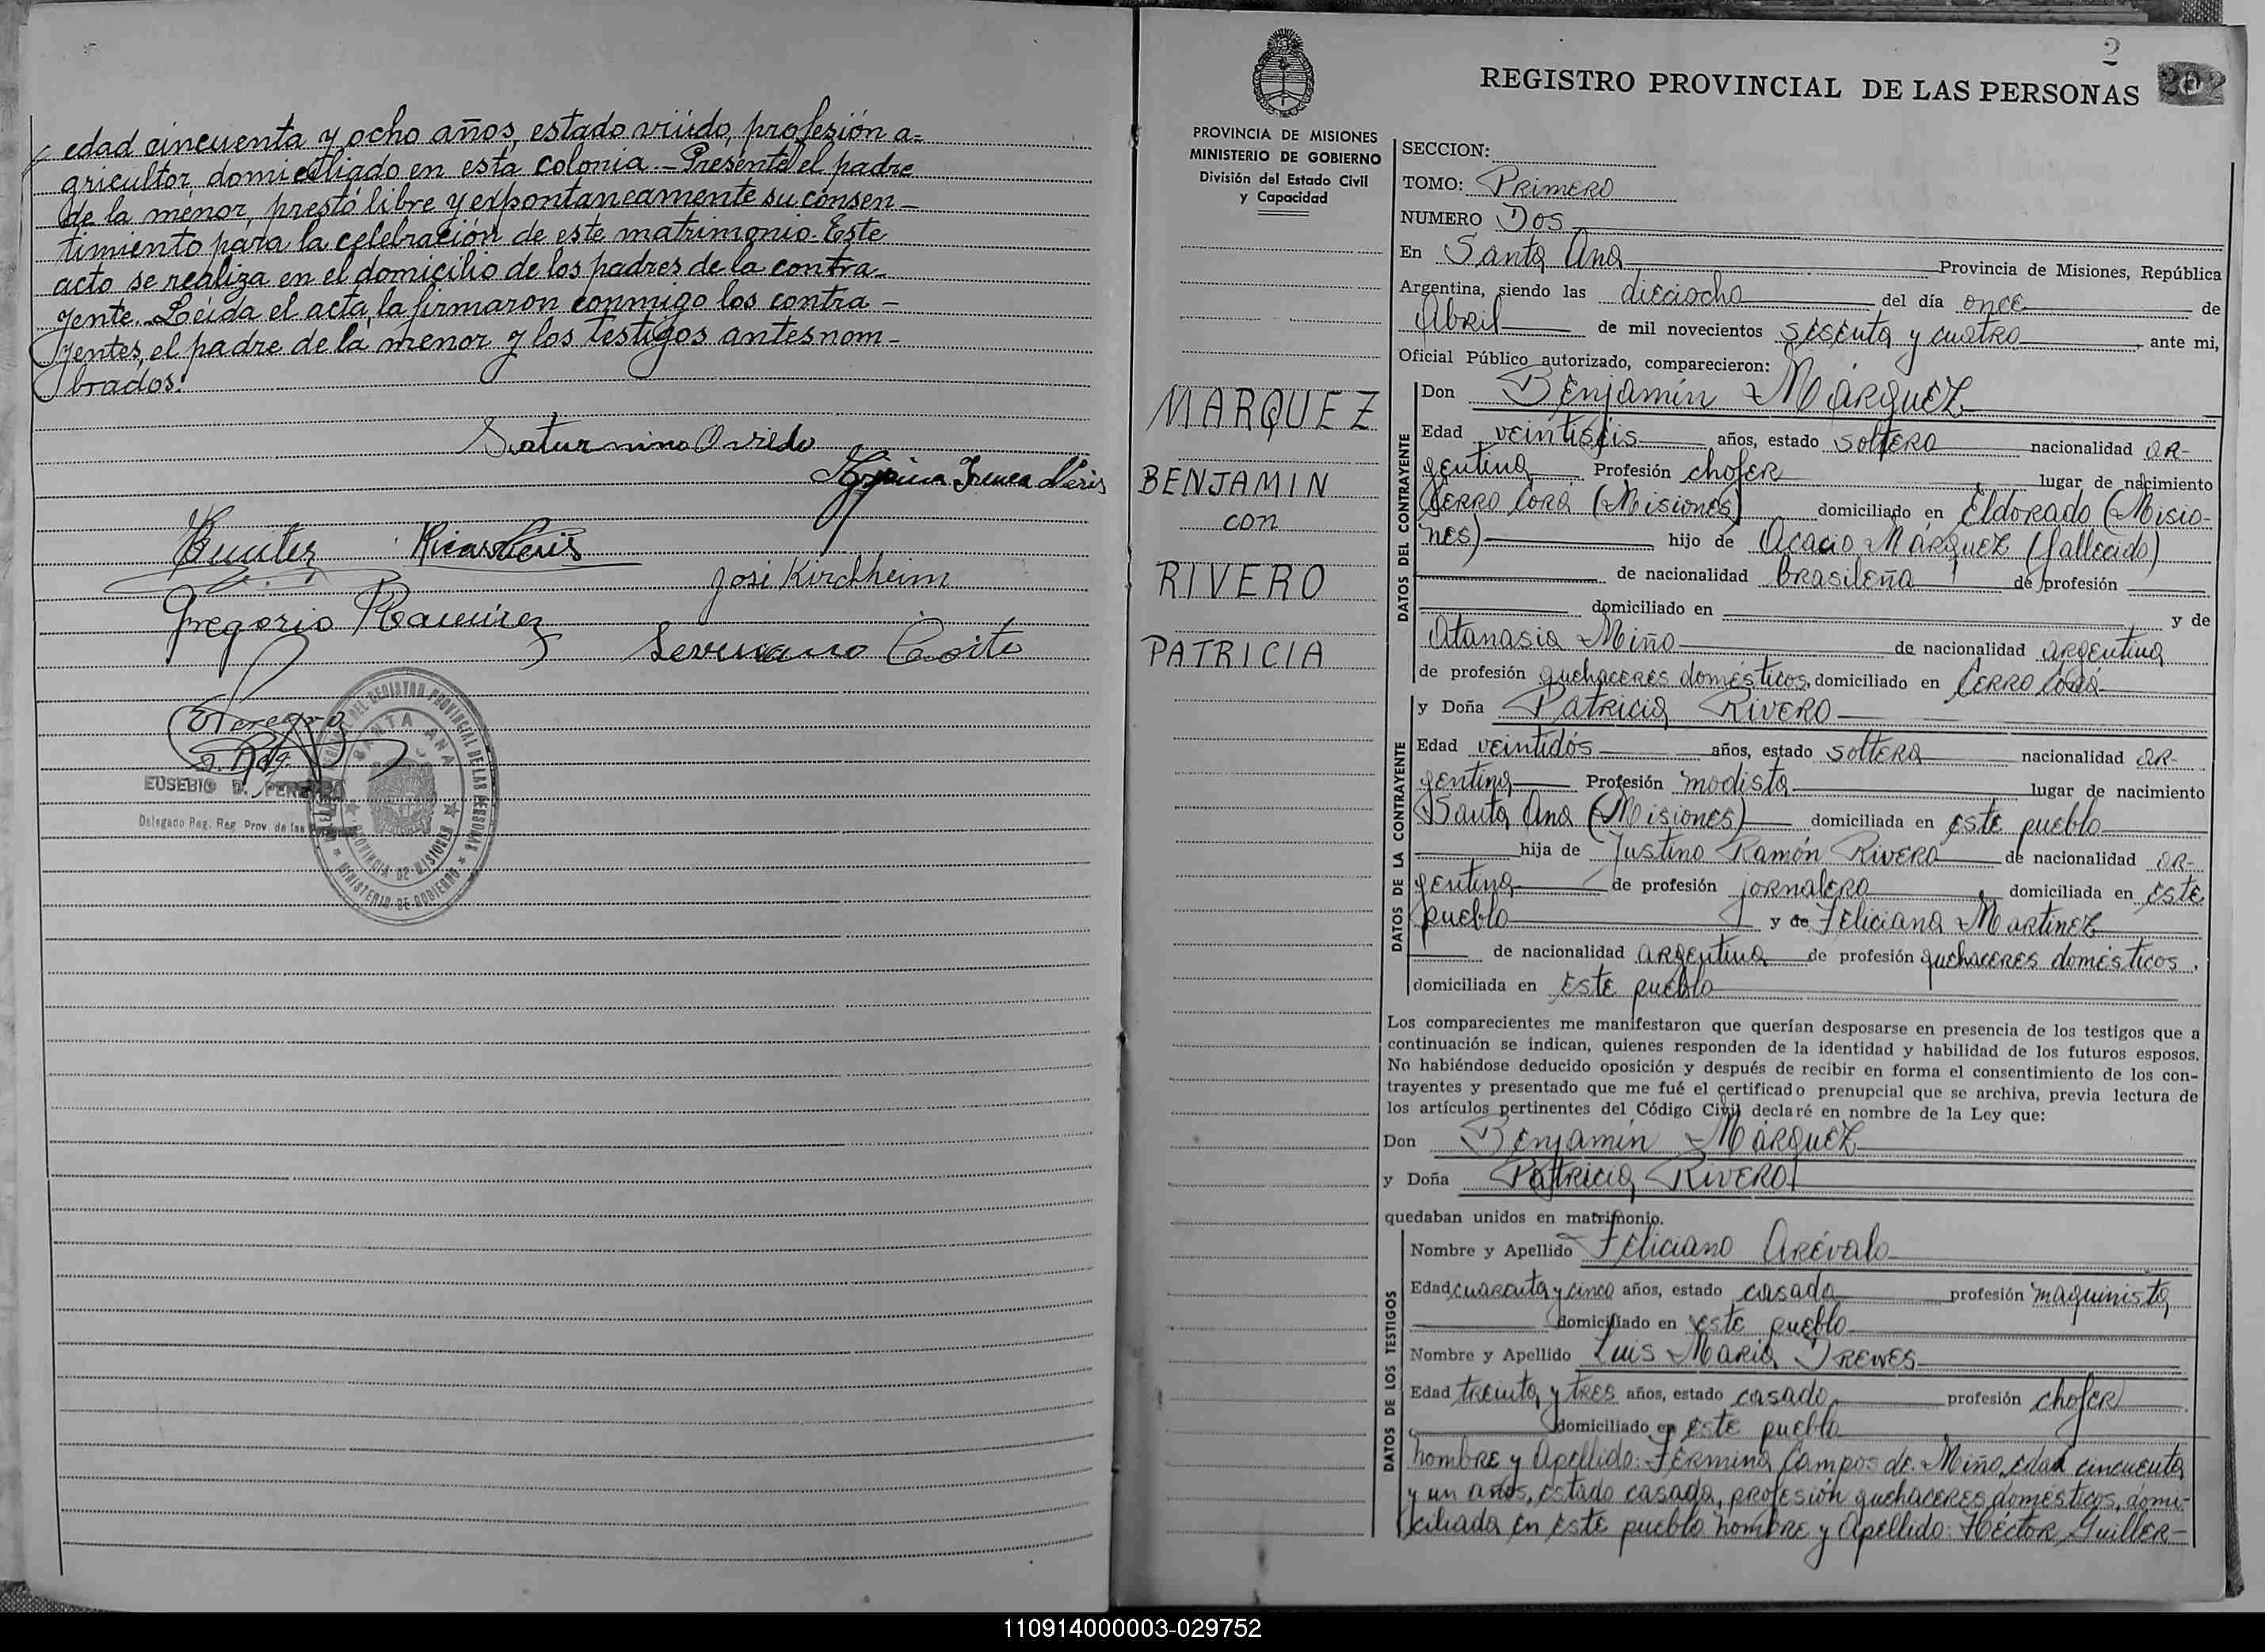 edad cincuenta y ocho años, estado viudo, profesión a-
gricultor, domiciliado en esta colonia.- Presente el padre
de la menor, prestó libre y expontaneamente su consen-
timiento para la celebración de este matrimonio. Este
acto se realiza en el domicilio de los padres de la contra-
yente. Leída el acta, la firmaron conmigo los contra-
yentes, el padre de la menor y los testigos antes nom-
brados:
Saturnino Oviedo
Irenea
José Kirchheim
Gregorio Ramírez
EUSEBIO D. PEREYRA
Delegado Reg. Reg Prov. de las
SANTA ANA
PROVINCIA DE MISIONES
MINISTERIO DE GOBIERNO
2
REGISTRO PROVINCIAL DE LAS PERSONAS 202
PROVINCIA DE MISIONES
MINISTERIO DE GOBIERNO
División del Estado Civil
y Capacidad
MARQUEZ
BENJAMIN
con
RIVERO
PATRICIA
SECCION:
TOMO: Primero
NUMERO Dos
En Santa Ana Provincia de Misiones, República
Argentina, siendo las dieciocho del día once de
Abril de mil novecientos sesenta y cuatro, ante mi,
Oficial Público autorizado, comparecieron:
DATOS DEL CONTRAYENTE
Don Benjamín Márquez
Edad veintiseis años, estado soltero nacionalidad ar-
gentina Profesión chofer lugar de nacimiento
Cerro Corá (Misiones) domiciliado en Eldorado (Misio-
nes) hijo de Acacio Márquez (fallecido)
de nacionalidad brasileña de profesión
domiciliado en y de
Atanasia Miño de nacionalidad argentina
de profesión quehaceres domésticos, domiciliado en Cerro Corá
DATOS DE LA CONTRAYENTE
y Doña Patricia Rivero
Edad veintidós años, estado soltera nacionalidad ar-
gentina Profesión modista lugar de nacimiento
Santa Ana (Misiones) domiciliada en este pueblo
hija de Justino Ramón Rivero de nacionalidad ar-
gentina de profesión jornalero domiciliada en este
pueblo y de Feliciana Martínez
de nacionalidad argentina de profesión quehaceres domésticos,
domiciliada en este pueblo
Los comparecientes me manifestaron que querían desposarse en presencia de los testigos que a
continuación se indican, quienes responden de la identidad y habilidad de los futuros esposos.
No habiéndose deducido oposición y después de recibir en forma el consentimiento de los con-
trayentes y presentado que me fué el certificado prenupcial que se archiva, previa lectura de
los artículos pertinentes del Código Civil declaré en nombre de la Ley que:
Don Benjamín Márquez
y Doña Patricia Rivero
quedaban unidos en matrimonio.
DATOS DE LOS TESTIGOS
Nombre y Apellido Feliciano Arévalo
Edad cuarenta y cinco años, estado casado profesión maquinista
domiciliado en este pueblo
Nombre y Apellido Luis María Drewes
Edad treinta y tres años, estado casado profesión chofer
domiciliado en este pueblo
Nombre y Apellido: Fermina Campos de Miño, edad cincuenta
y un años, estado casada, profesión quehaceres domésticos, domi-
ciliada en este pueblo. Nombre y Apellido: Héctor Guiller-
110914000003-029752